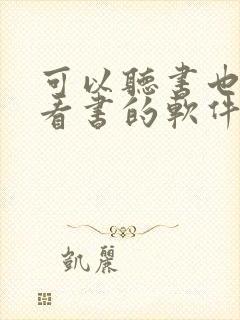 可以聽書也
看書的軟件
凱麗